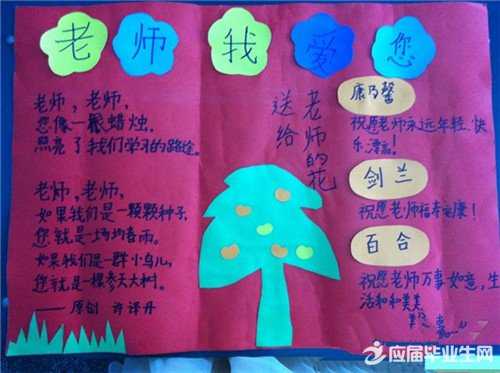 老师我爱您
老师，老师，
您像一根蜡烛。
照亮了我们学习的路途。
老师，老师，
如果我们是一颗颗种子，
您就是一场场春雨。
如果我们是一群小鸟儿，
您就是一棵参天大树。
——原创 许译丹
送给
老师的花
康乃馨
祝愿老师永远年轻、快
乐、漂亮！
剑兰
祝愿老师福寿安康！
百合
祝愿老师万事如意，生
活和和美美
应届毕业生网